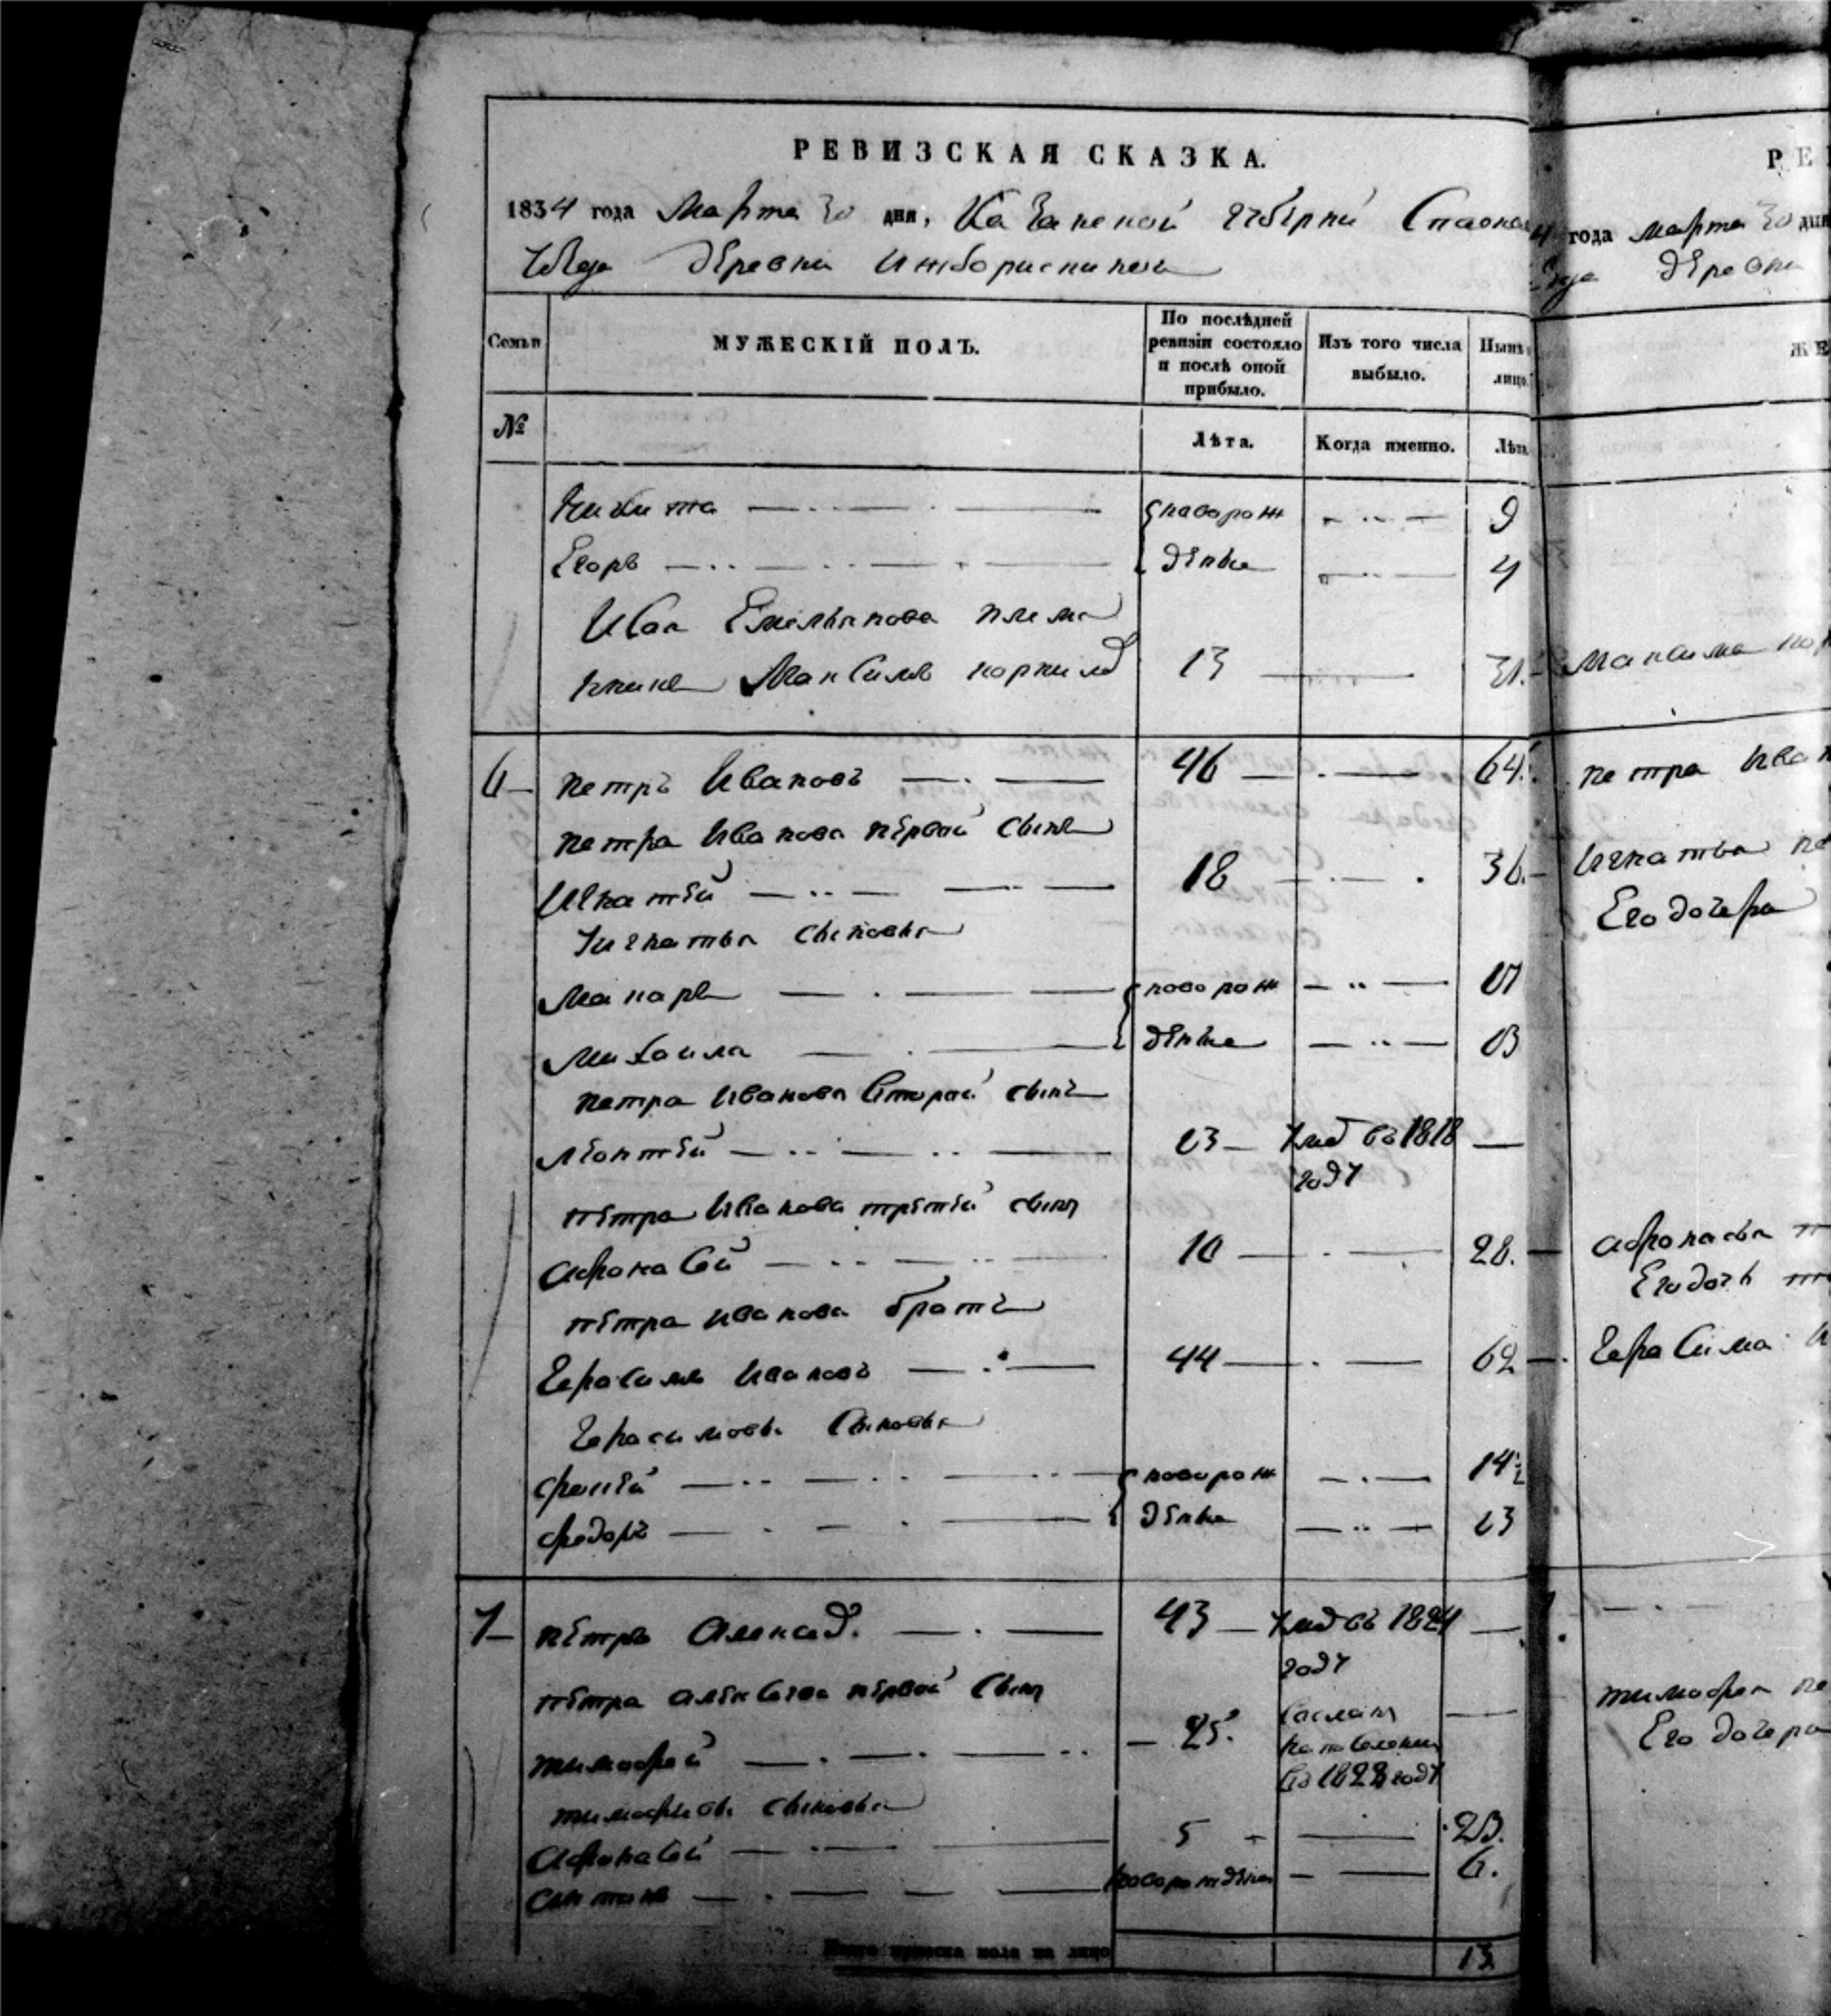 РЕВИЗСКАЯ СКАЗКА.
1834 года Марта 30 дня, Казанской губернии Спаска
уезда деревни
Семьи
МУЖЕСКІЙ ПОЛЪ.
По послѣдней ревизіи состояло и послѣ оной прибыло.
Изъ того числа выбыло.
Нынѣ
лицо.
№
Лѣта.
Когда именно.
Лѣта
Никита новорож 9
Егоръ дены 4
Иван Емельянова племе
нникъ Максимъ Корнилов 13 31.
6 Петръ Ивановъ 46 64.
Петра Иванова первой сынъ
Игнатей 18 36.
Игнатья сыновья
Макаръ новорож 17
Михаила дены 13
Петра Иванова второй сынъ
Леонтей 13 умер въ 1818
году
Петра Иванова третей сынъ
Афонасей 10 28.
Петра Иванова братъ
Герасимъ Ивановъ 44 62
Герасимовы сыновья
новорож 14
Федоръ дены 13
7 Петръ Алексеев. 43 умер въ 1824
году
Петра Алексеева первой сынъ
Тимофей 25. Сослан
на поселении
въ 1828 году
Тимофеевы сыновья
Афонасей 5 23.
новорожденн 6.
Итого мужеска пола на лицо 13.
РЕ
года марта 30 дня
деревни
ЖЕ
Максима Кор
Петра Иван
Игнатья пе
Его дочери
Афонасья
Его дочь
Герасима И
Тимофея пе
Его дочери